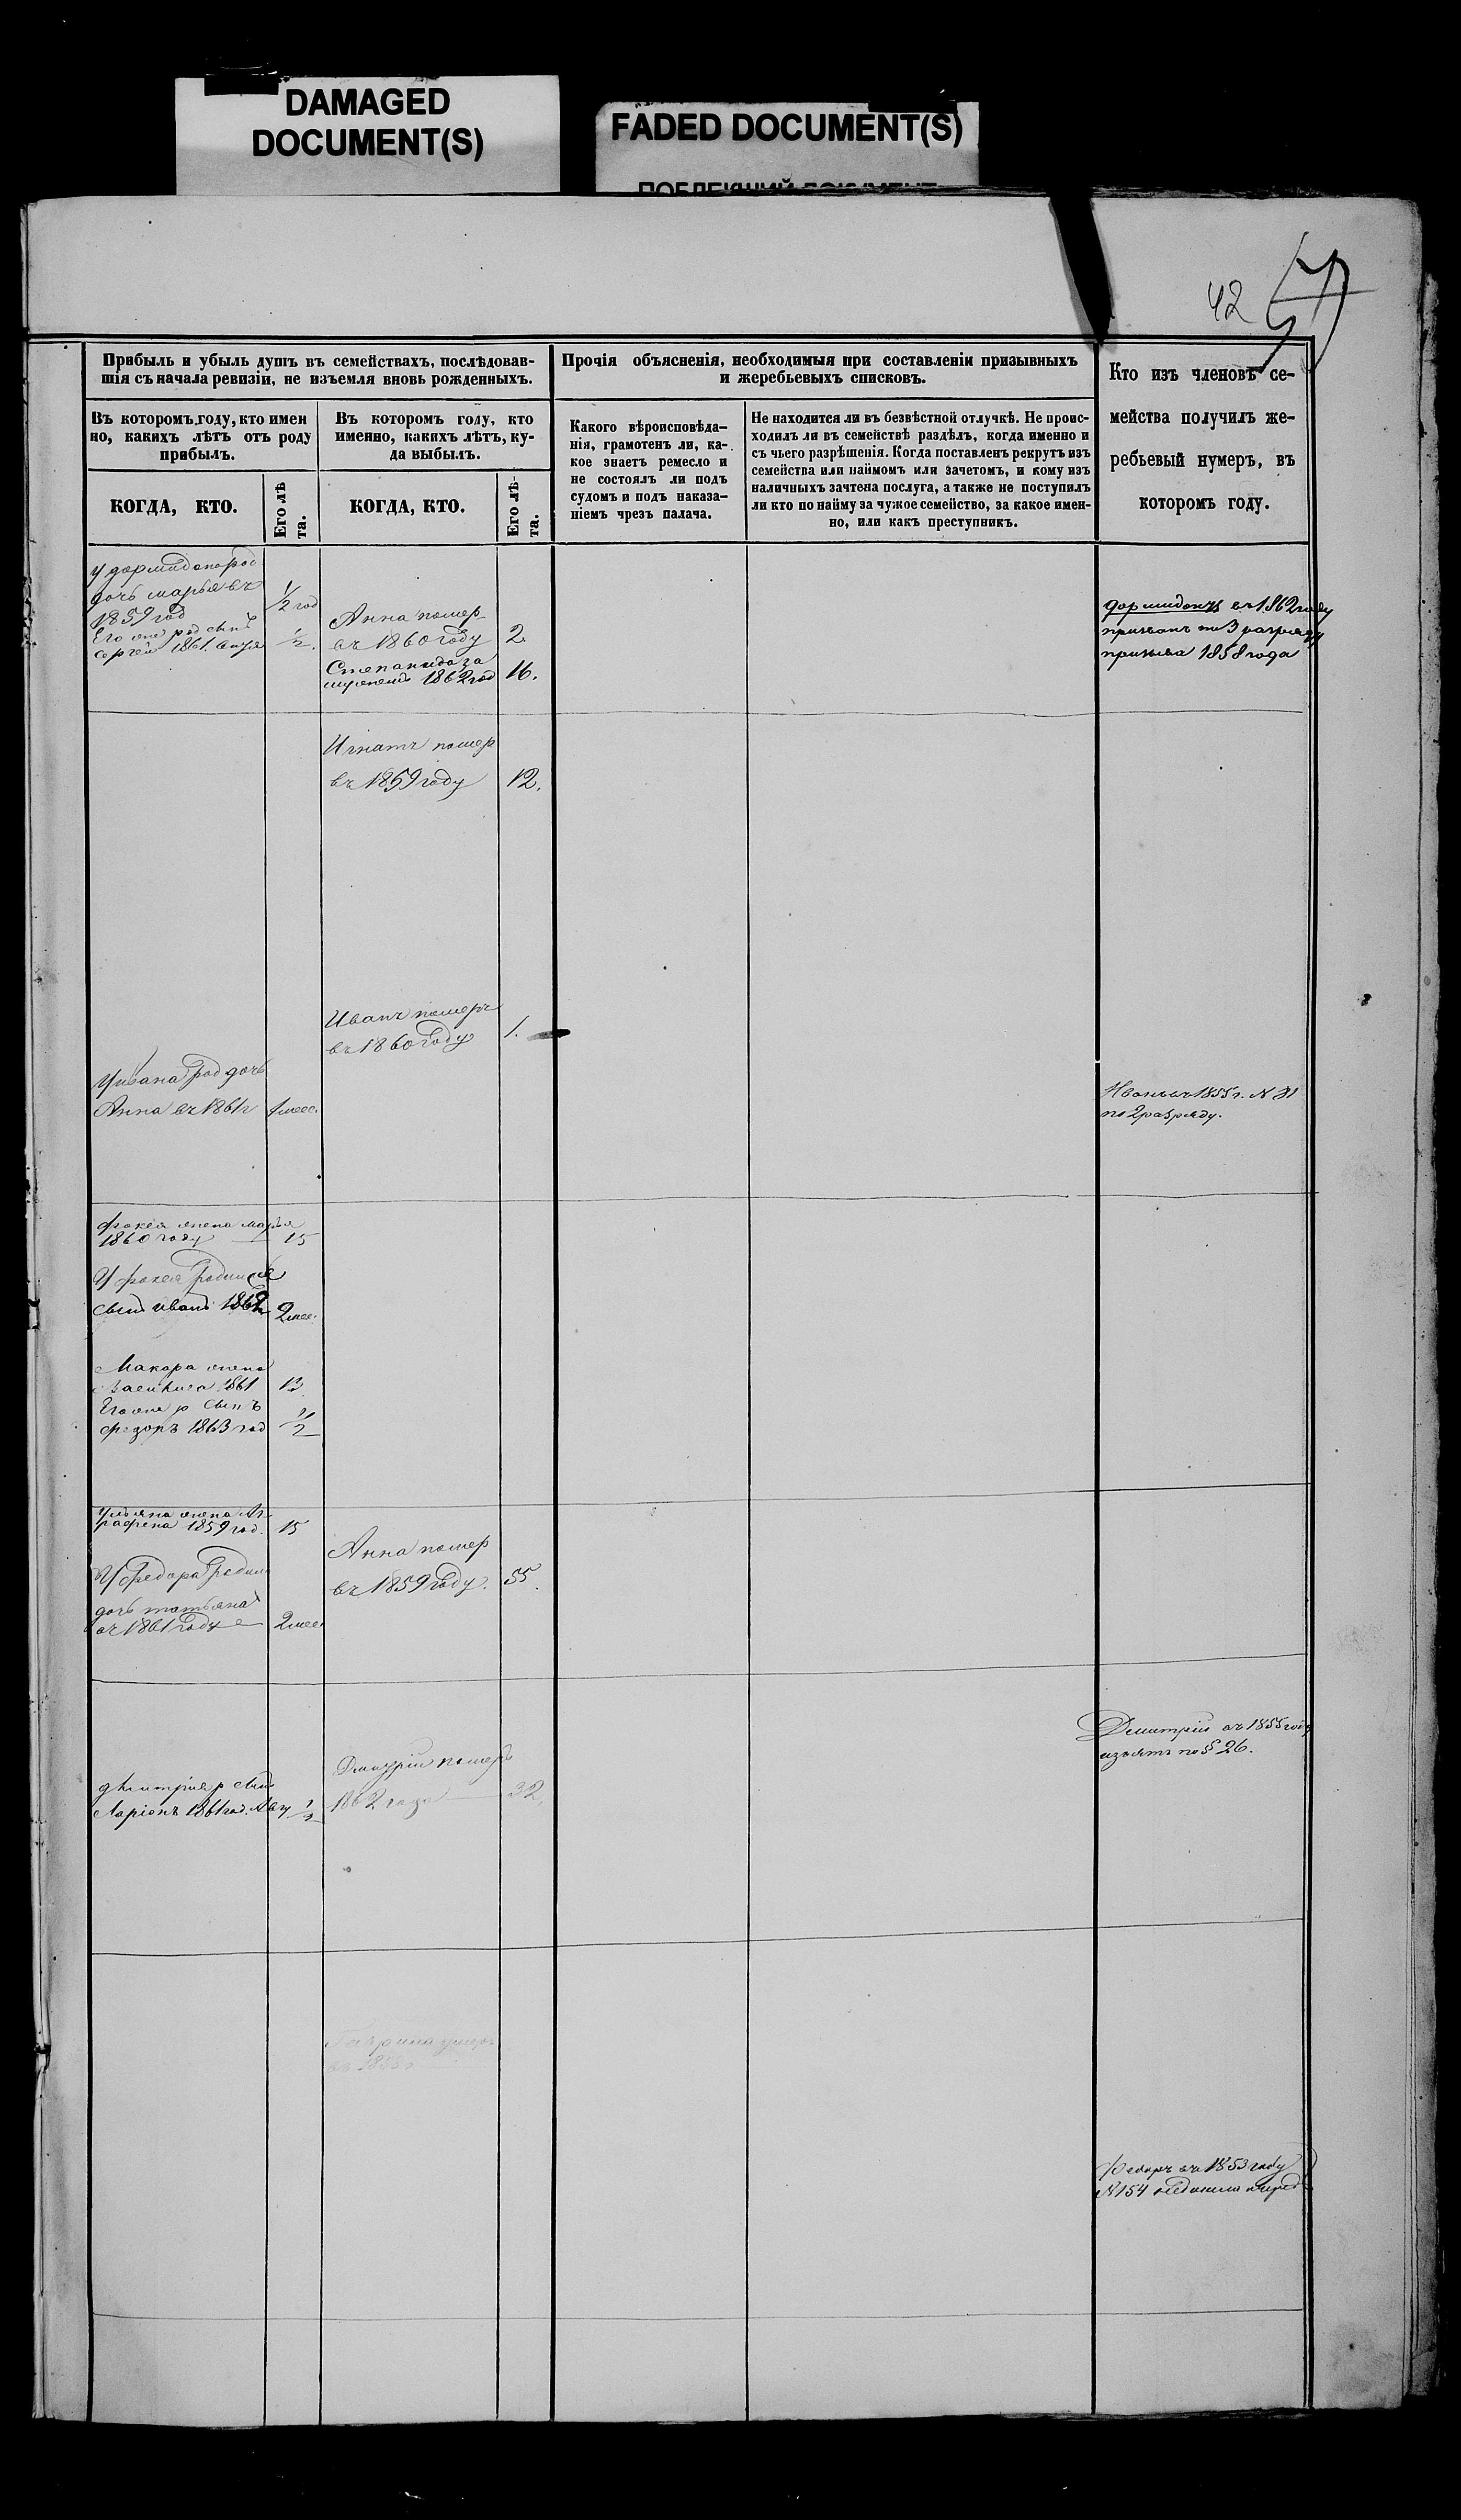 DAMAGED
DOCUMENT(S)
FADED DOCUMENT(S)
ПОБЛЕКШИЙ ДОКУМЕНТ
42
Прибыль и убыль душъ въ семействахъ, послѣдовав-
шія съ начала ревизіи, не изъемля вновь рожденныхъ.
Въ которомъ году, кто имен
но, какихъ лѣтъ отъ роду
прибылъ.
КОГДА, КТО.
Его лѣ
та.
Въ которомъ году, кто
именно, какихъ лѣтъ, ку-
да выбылъ.
КОГДА, КТО.
Его лѣ-
та.
Прочія объясненія, необходимыя при составленіи призывныхъ
и жеребьевыхъ списковъ.
Какого вѣроисповѣда-
нія, грамотенъ ли, ка-
кое знаетъ ремесло и
не состоялъ ли подъ
судомъ и подъ наказа-
ніемъ чрезъ палача.
Не находится ли въ безвѣстной отлучкѣ. Не проис-
ходилъ ли въ семействѣ раздѣлъ, когда именно и
съ чьего разрѣшенія. Когда поставленъ рекрутъ изъ
семейства или наймомъ или зачетомъ, и кому изъ
наличныхъ зачтена послуга, а также не поступилъ
ли кто по найму за чужое семейство, за какое имен-
но, или какъ преступникъ.
Кто изъ членовъ се-
мейства получилъ же-
ребьевый нумеръ, въ
которомъ году.
у дормидона род
дочь марья въ
1859 год 1/2 год
Его род сынъ
сергей 1861 1/2
Анна помер
въ 1860 году 2
Степанида за
1862 год 16.
дормидонъ въ 1862 году
призванъ по 3 разряду
призыва 1858 года
Игнатъ помер
въ 1859 году 12.
Иванъ померъ
въ 1860 году 1.
У ивана род дочь
Анна въ 1861 г 1 мес.
Иванъ въ 1855 г. N 81
по 2 разряду.
фокея жена марья
1860 году 15
У фокея родился
сынъ иванъ 2 мес.
Макара жена
1861
Его сынъ
федоръ 1863 год 1/2
ульяна жена Аг
рафена 1859 год. 15
У федора родил
дочь татьяна
въ 1861 году 2 мес
Анна помер
въ 1859 году. 55.
Дмитрій въ 1855 году
изъятъ по § 26.
дмитрия р сынъ
Ларіонъ 1861 год. 1/2
Дмитрій помер
1862 года 32.
Федоръ въ 1853 году
N 154